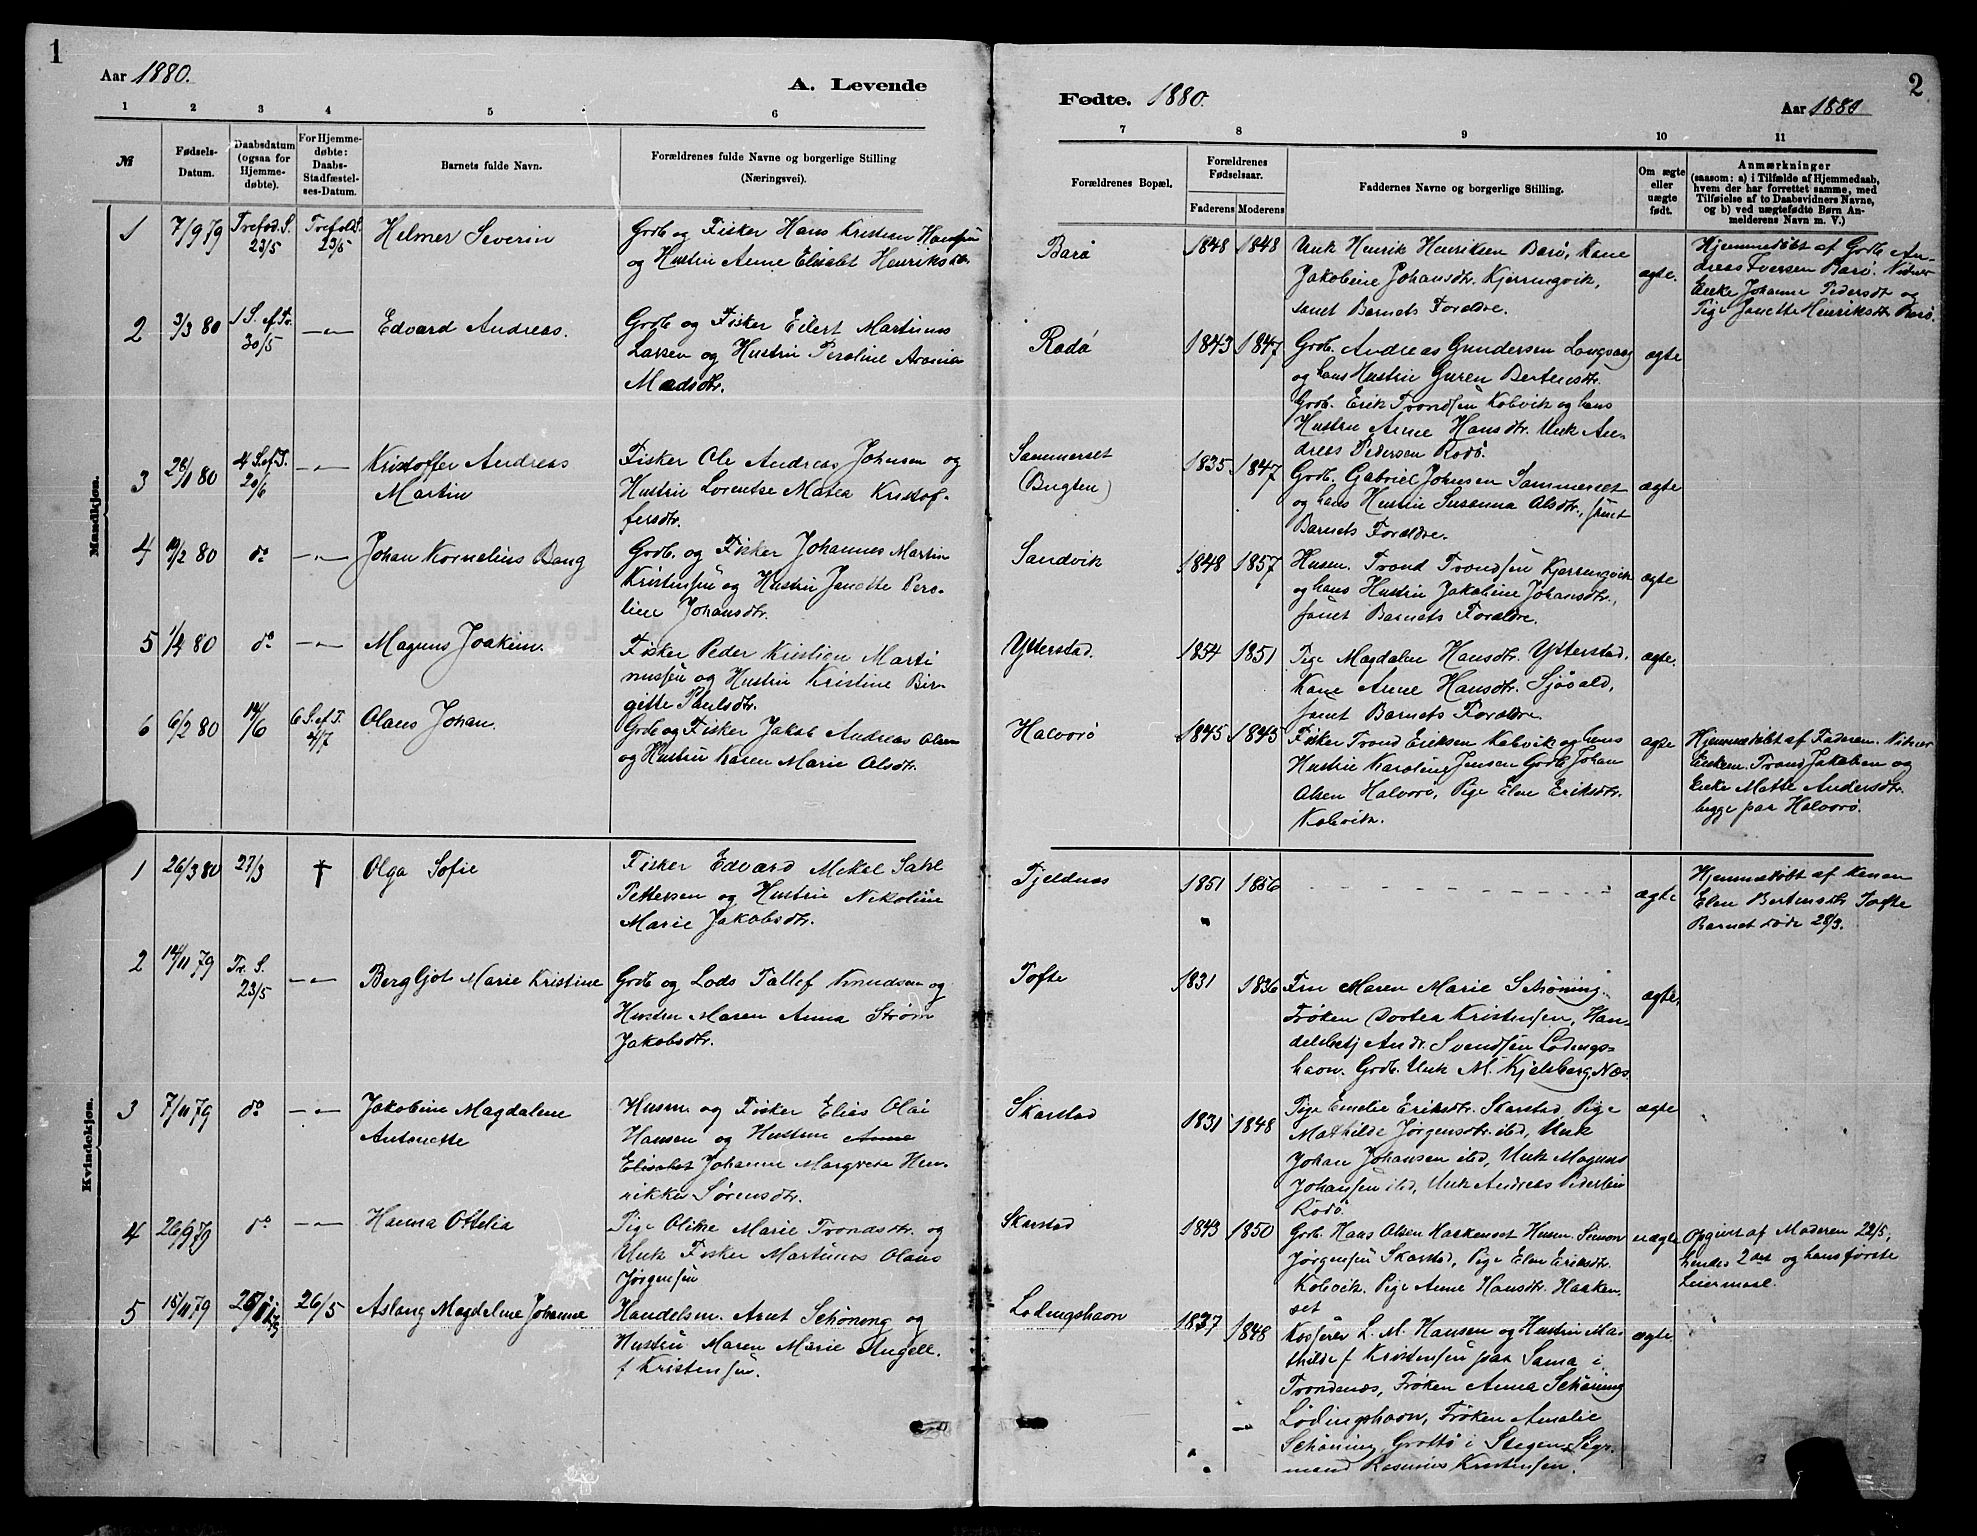 1
Aar 1880.
A. Levende
1 2 3 4 5 6
№
Fødsels-Datum.
Daabsdatum (ogsaa for Hjemmedøbte).
For Hjemmedøbte: Daabs-Stadfæstelses-Datum.
Barnets fulde Navn.
Forældrenes fulde Navne og borgerlige Stilling (Næringsvei).
Mandkjøn.
1 7/9 79 Trefold. S. 23/5 Trefold S. 23/5 Helmer Severin
Grdb og Fisker Hans Kristian Hansen
og Hustru Anne Elisabet Henriksdtr.
2 3/3 80 1 S. ef Tr. 30/5 —„— Edvard Andreas.
Grdb og Fisker Eilert Martinus
Larsen og Hustru Peroline Aronia
Madsdtr.
3 28/1 80 4 S. ef T. 20/6 —„— Kristoffer Andreas
Martin
Fisker Ole Andreas Johnsen og
Hustru Lorentse Matea Kristof-
fersdtr.
4 /2 80 do —„— Johan Kornelius Bang
Grdb. og Fisker Johannes Martin
Kristensen og Hustru Janette Pero-
line Johansdtr.
5 1/4 80 do —„— Magnus Joakim.
Fisker Peder Kristian Marti
nussen og Hustru Kristine Bir-
gitte Paulsdtr.
6 6/2 80 14/6 6 S. ef T. 4/7 Olaus Johan.
Grdb og Fisker Jakob Andreas Olsen
og Hustru Karen Marie Olsdtr.
Kvindekjøn.
1 26/3 80 27/3 † Olga Sofie
Fisker Edvard Mikal
Pettersen og Hustru Nikoline
Marie Jakobsdtr.
2 14/11 79 Tr. S. 23/5 —„— Bergljot Marie Kristine
Grdb og Lods Tallef Knudsen og
Hustru Maren Anna Strøm
Jakobsdtr.
3 7/11 79 do —„— Jakobine Magdalene
Antonette
Husm og Fisker Elias Olai
Hansen og Hustru Anne
Elisabet Johanne Margrete Hen-
rikke Sørensdtr.
4 26/9 79 do —„— Hanna Ottelia
Pige Oline Marie Trondsdtr. og
Unk Fisker Martinus Olaus
Jørgensen
5 15/11 79 26/5 Aslaug Magdalene Johanne
Handelsm. Arnt Schøning og
Hustru Maren Marie Angell
f Kristensen.
2
Fødte. 1880.
Aar 1880
7 8 9 10 11
Forældrenes Bopæl.
Forældrenes Fødselsaar.
Faderens Moderens
Faddernes Navne og borgerlige Stilling.
Om ægte eller uægte født.
Anmærkninger
(saasom: a) i Tilfælde af Hjemmedaab,
hvem der har forrettet samme, med
Tilføielse af to Daabsvidners Navne,
og b) ved uægtefødte Børn An-
melderens Navn m. V.)
Barø 1848 1848
Unk Henrik Henriksen Barø, Kone
Jakobine Johansdtr. Kjerringvik,
samt Barnets Forældre.
ægte.
Hjemmedøbt af Grdb An-
dreas Iversen Barø. Vidner
Enke Johanne Pedersdt og
Pige Janette Henriksdt Barø.
Rødø 1843 1847
Grdb. Andreas Gundersen Langvaag
og hans Hustru Guren Berthusdtr.
Grdb. Erik Trondsen Kobvik og hans
Hustru Anne Hansdtr. Unk An-
dreas Pedersen Rødø.
ægte
Sammerset
(Bugten)
1835 1847
Grdb. Gabriel Johnsen Sammerset
og hans Hustru Susanna Olsdtr., samt
Barnets Forældre.
ægte
Sandvik 1848 1857
Husm. Trond Trondsen Kjerringvik
og hans Hustru Jakobine Johansdtr.,
samt Barnets Forældre.
ægte
Ytterstad. 1854 1851
Pige Magdalene Hansdtr. Ytterstad,
Kone Anne Hansdtr. Sjøvold,
samt Barnets Forældre.
ægte.
Halvorø 1845 1843
Fisker Trond Eriksen Kobvik og hans
Hustru Karoline Jensen Grdb Johan
Olsen Halvorø, Pige Elen Eriksdtr.
Kobvik.
ægte
Hjemmedøbt af Faderen. Vidner
Enkem. Trond Jakobsen og
Enke Mette Andersdtr.
begge paa Halvorø.
Fjeldnes 1851 1856
ægte
Hjemmedøbt af Konen
Elen Bertensdtr Tofte
Barnet døde 28/3.
Tofte 1831 1836
Fru Maren Marie Schøning,
Frøken Dortea Kristensen, Han-
delsbetj Andr. Svendsen Lødings-
havn. Grdb. Unk M. Kjelsberg, Næs.
ægte.
Skarstad 1831 1848
Pige Emelie Eriksdtr. Skarstad, Pige
Mathilde Jørgensdtr. ibd, Unk
Johan Johansen ibd, Unk Magnus
Johansen ibd, Unk Andreas Pedersen
Rødø.
ægte
Skarstad 1843 1850
Grdb. Haas Olsen Haakenset Husm. Simon
Jørgensen Skarstad, Pige Elen Eriksdtr.
Kobvik. Pige Anne Hansdtr. Haaken
set
uægte
Opgivet af Moderen 22/5,
hendes 2det og hans første
Leiermaal.
Lødingshavn 1837 1848
Kasserer L. M. Hansen og Hustru Ma-
thilde f Kristensen paa Sama i
Trondenæs, Frøken Anna Schøning
Lødingshavn, Frøken Amalie
Schøning, Grøttø i Stegen, Styr-
mand Rasmus Kristensen.
ægte